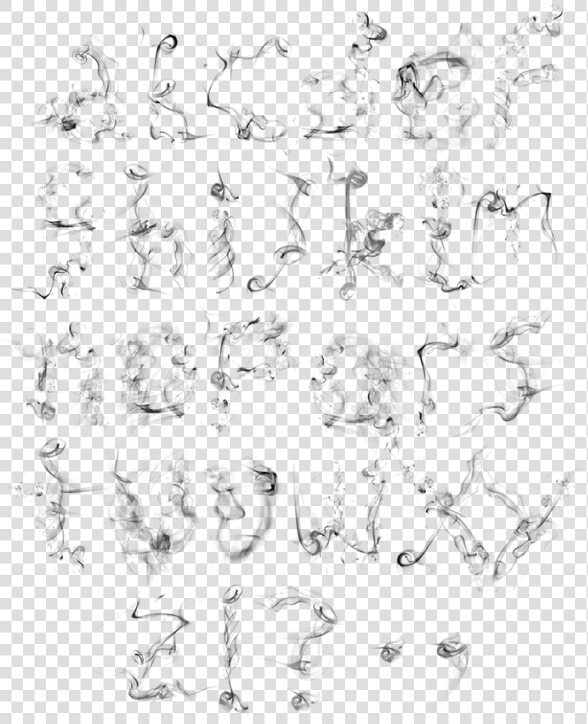 a b c d e f
g h i j k l m
n o p q r s
t u v w x y
z ! ? . ,